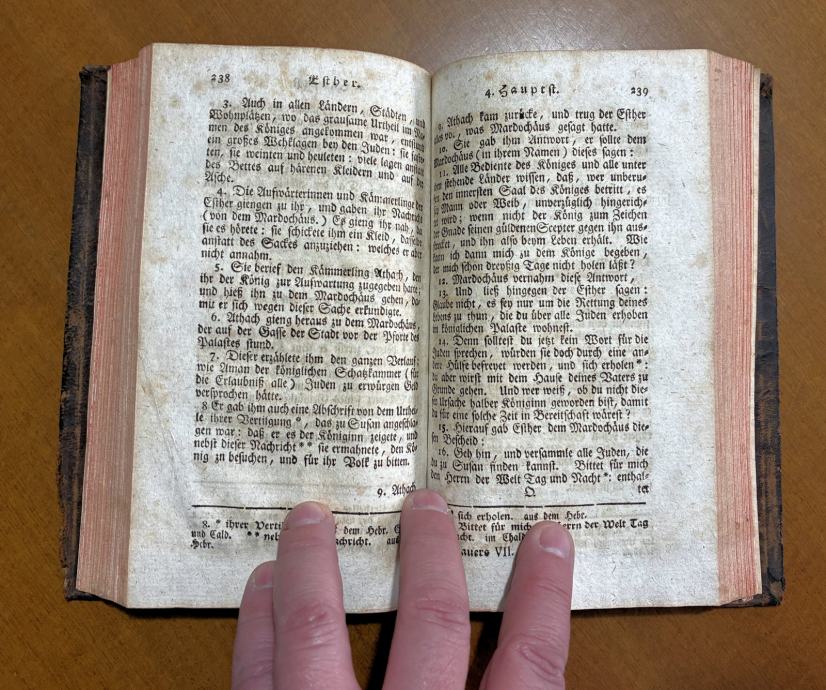 238 Esther.
3. Auch in allen Ländern, Städten, und
Wohnplätzen, wo das grausame Urtheil im
men des Königes angekommen war, entstund
ein großes Wehklagen bey den Juden: sie
ten, sie weinten und heuleten: viele lagen anstatt
des Bettes auf härenen Kleidern und auf der
Asche.
4. Die Aufwärterinnen und Kämmerlinge der
Esther giengen zu ihr, und gaben ihr Nachricht
(von dem Mardochäus.) Es gieng ihr nah, da
sie es hörete: sie schickete ihm ein Kleid, dasselbe
anstatt des Sackes anzuziehen: welches er aber
nicht annahm.
5. Sie berief den Kämmerling Athach, den
ihr der König zur Aufwartung zugegeben hatte;
und hieß ihn zu dem Mardochäus gehen, da-
mit er sich wegen dieser Sache erkundigte.
6. Athach gieng heraus zu dem Mardochäus,
der auf der Gasse der Stadt vor der Pforte des
Palastes stund.
7. Dieser erzählete ihm den ganzen Verlauf:
wie Aman der königlichen Schatzkammer (für
die Erlaubniß alle) Juden zu erwürgen Geld
versprochen hätte.
8 Er gab ihm auch eine Abschrift von dem Urthei-
le ihrer Vertigung *, das zu Susan angeschla-
gen war: daß er es der Königinn zeigete, und
nebst dieser Nachricht ** sie ermahnete, den Kö-
nig zu besuchen, und für ihr Volk zu bitten.
9. Athach
8. * ihrer dem Hebr.
und Cald. ** chricht.
Hebr.
4. Hauptst. 239
9. Athach kam zurücke, und trug der Esther
alles vor, was Mardochäus gesagt hatte.
10. Sie gab ihm Antwort, er sollte dem
Mardochäus (in ihrem Namen) dieses sagen:
11. Alle Bediente des Königes und alle unter
stehende Länder wissen, daß, wer unberu-
den innersten Saal des Königes betritt, es
Mann oder Weib, unverzüglich hingerich-
wird: wenn nicht der König zum Zeichen
der Gnade seinen güldenen Scepter gegen ihn aus-
strecket, und ihn also beym Leben erhält. Wie
kann ich dann mich zu dem Könige begeben,
der mich schon dreyßig Tage nicht holen läßt?
12. Mardochäus vernahm diese Antwort,
13. Und ließ hingegen der Esther sagen:
Glaube nicht, es sey nur um die Rettung deines
Lebens zu thun, die du über alle Juden erhoben
im königlichen Palaste wohnest.
14. Denn solltest du jetzt kein Wort für die
Juden sprechen, würden sie doch durch eine an-
dere Hülfe befreyet werden, und sich erholen *:
du aber wirst mit dem Hause deines Vaters zu
Grunde gehen. Und wer weiß, ob du nicht dies-
Ursache halber Königinn geworden bist, damit
du für eine solche Zeit in Bereitschaft wärest?
15. Hierauf gab Esther dem Mardochäus die-
sen Bescheid:
16. Geh hin, und versammle alle Juden, die
du zu Susan finden kannst. Bittet für mich
den Herrn der Welt Tag und Nacht *: enthal-
Q tet
sich erholen. aus dem Hebr.
Bittet für mich Herrn der Welt Tag
cht. im Chald.
auers VII.